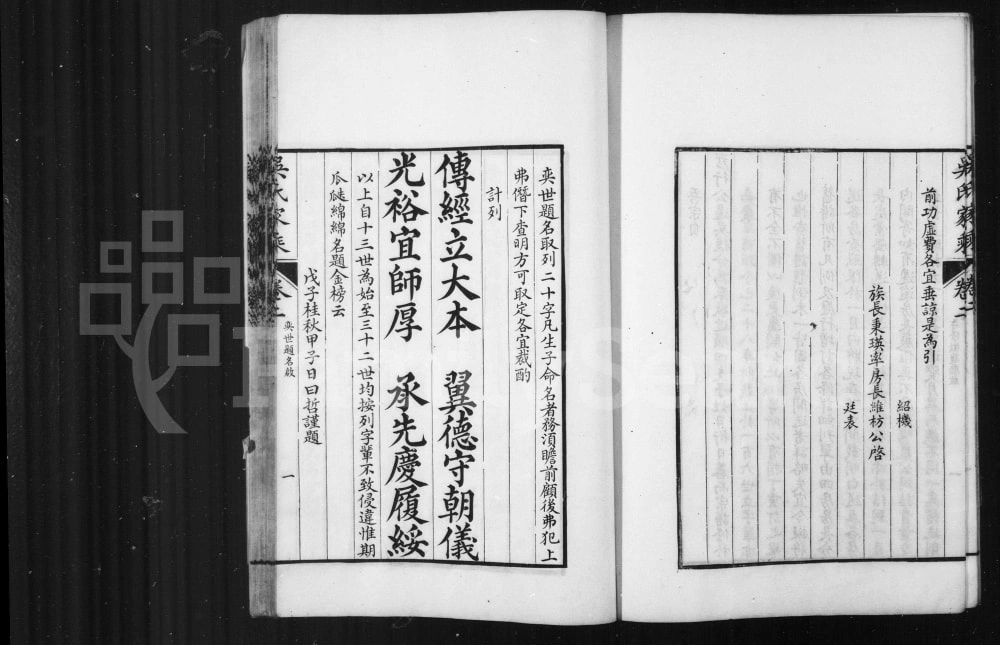 吳氏家乘
卷二
前功虛費各宜垂諒是為引
紹機
族長秉瑛率房長維枋公啓
廷表
奕世題名取列二十字凡生子命名者務須瞻前顧後弗犯上
弗僭下查明方可取定各宜裁酌
計列
傳經立大本 翼德守朝儀
光裕宜師厚 承先慶履綏
以上自十三世為始至三十二世均按列字輩不致侵違惟期
瓜瓞綿綿名題金榜云
戊子桂秋甲子日曰哲謹題
吳氏家乘
卷二
奕世題名啟
一